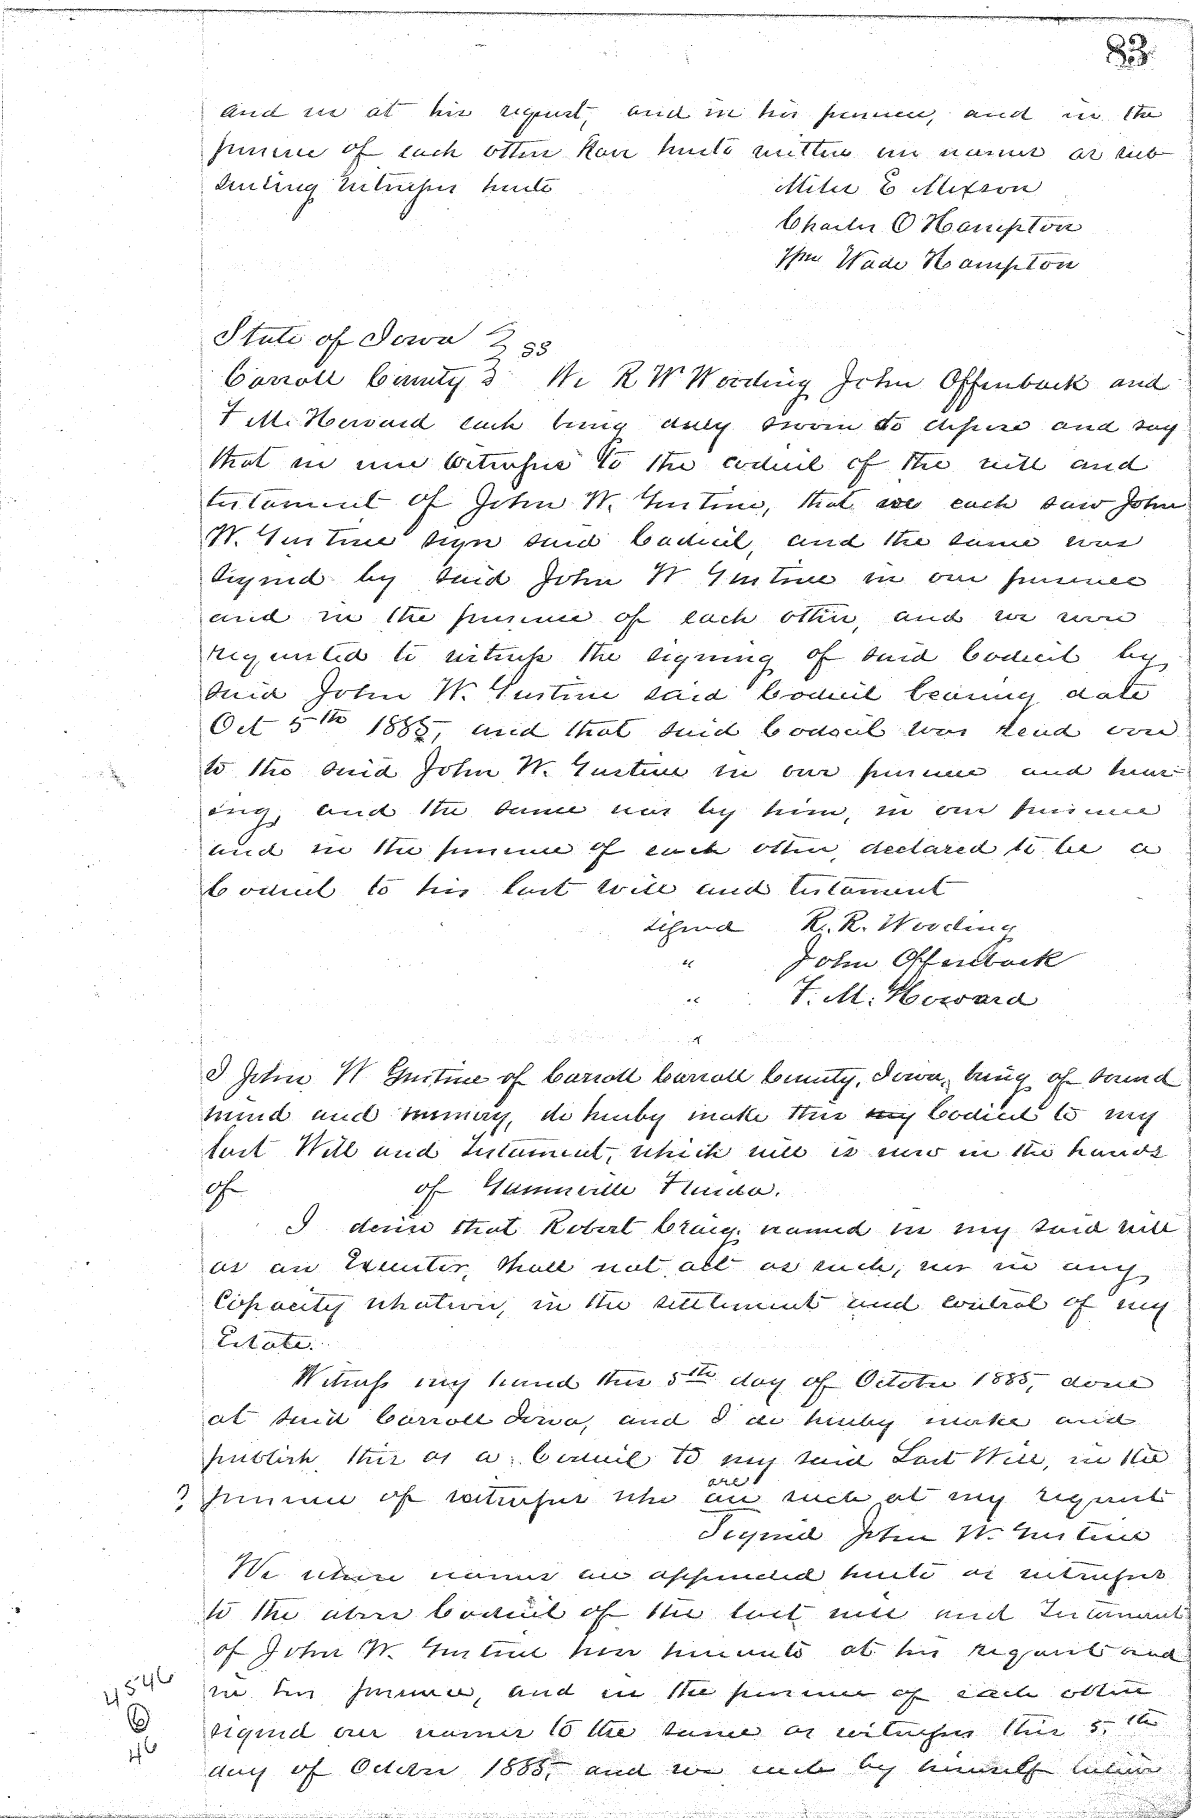 83
and we at his request, and in his presence, and in the
presence of each other have hereto written our names as sub
scribing witnesses hereto Miles E Mixson
Charles O Hampton
Wm Wade Hampton
State of Iowa } ss
Carroll County } We R W Wooding John Offenback and
F M. Howard each being duly sworn do depose and say
that we were Witnesses to the codicil of the will and
testament of John W. Gustine, that we each saw John
W. Gustine sign said Codicil, and the same was
signed by said John W Gustine in our presence
and in the presence of each other, and we were
requested to witness the signing of said Codicil by
said John W. Gustine said Codicil bearing date
Oct 5th 1885, and that said Codicil was read over
to the said John W. Gustine in our presence and hear-
ing, and the same was by him, in our presence
and in the presence of each other, declared to be a
Codicil to his last will and testament
signed R. R. Wooding
" John Offenback
" F. M. Howard
I John W Gustine of Carroll Carroll County, Iowa, being of sound
mind and memory, do hereby make this my Codicil to my
last Will and Testament, which will is now in the hands
of of Gainesville Florida.
I desire that Robert Craig named in my said will
as an Executor, shall not act as such, nor in any
Capacity whatever, in the settlement and control of my
Estate.
Witness my hand this 5th day of October 1885, done
at said Carroll Iowa, and I do hereby make and
publish this as a Codicil to my said Last Will, in the
are
? presence of witnesses who are such at my request
Signed John W. Gustine
We whose names are appended hereto as witnesses
to the above Codicil of the last will and Testament
of John W. Gustine have hereunto at his request and
in his presence, and in the presence of each other
signed our names to the same as witnesses this 5th
4546
6
46
day of October 1885, and we each by himself believe